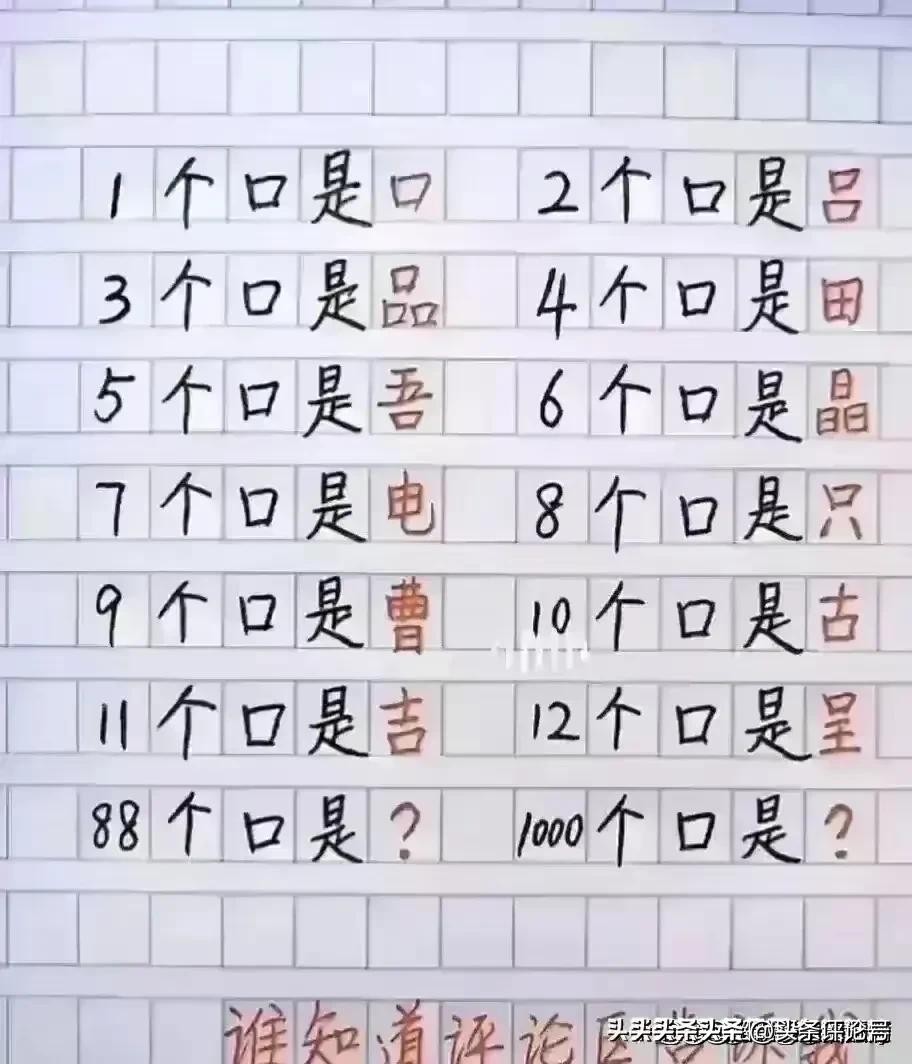 1个口是口 2个口是吕
3个口是品 4个口是田
5个口是吾 6个口是晶
7个口是电 8个口是只
9个口是曹 10个口是古
11个口是吉 12个口是呈
88个口是? 1000个口是?
谁知道评论区告